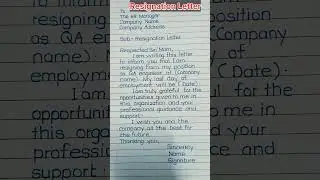 Resignation Letter
To
The HR Manager
Company Name
Company Address
Sub:- Resignation Letter
Respected Sir/Mam,
I am writing this letter
to inform you that I am
resigning from my position
as QA engineer at (Company
name). My last day of
employment will be (Date).
I am truly grateful for the
opportunities given to me in
this organization and your
professional guidance and
support.
I wish you and the
company all the best for
the future.
Thanking you,
Sincerely
Name
Signature